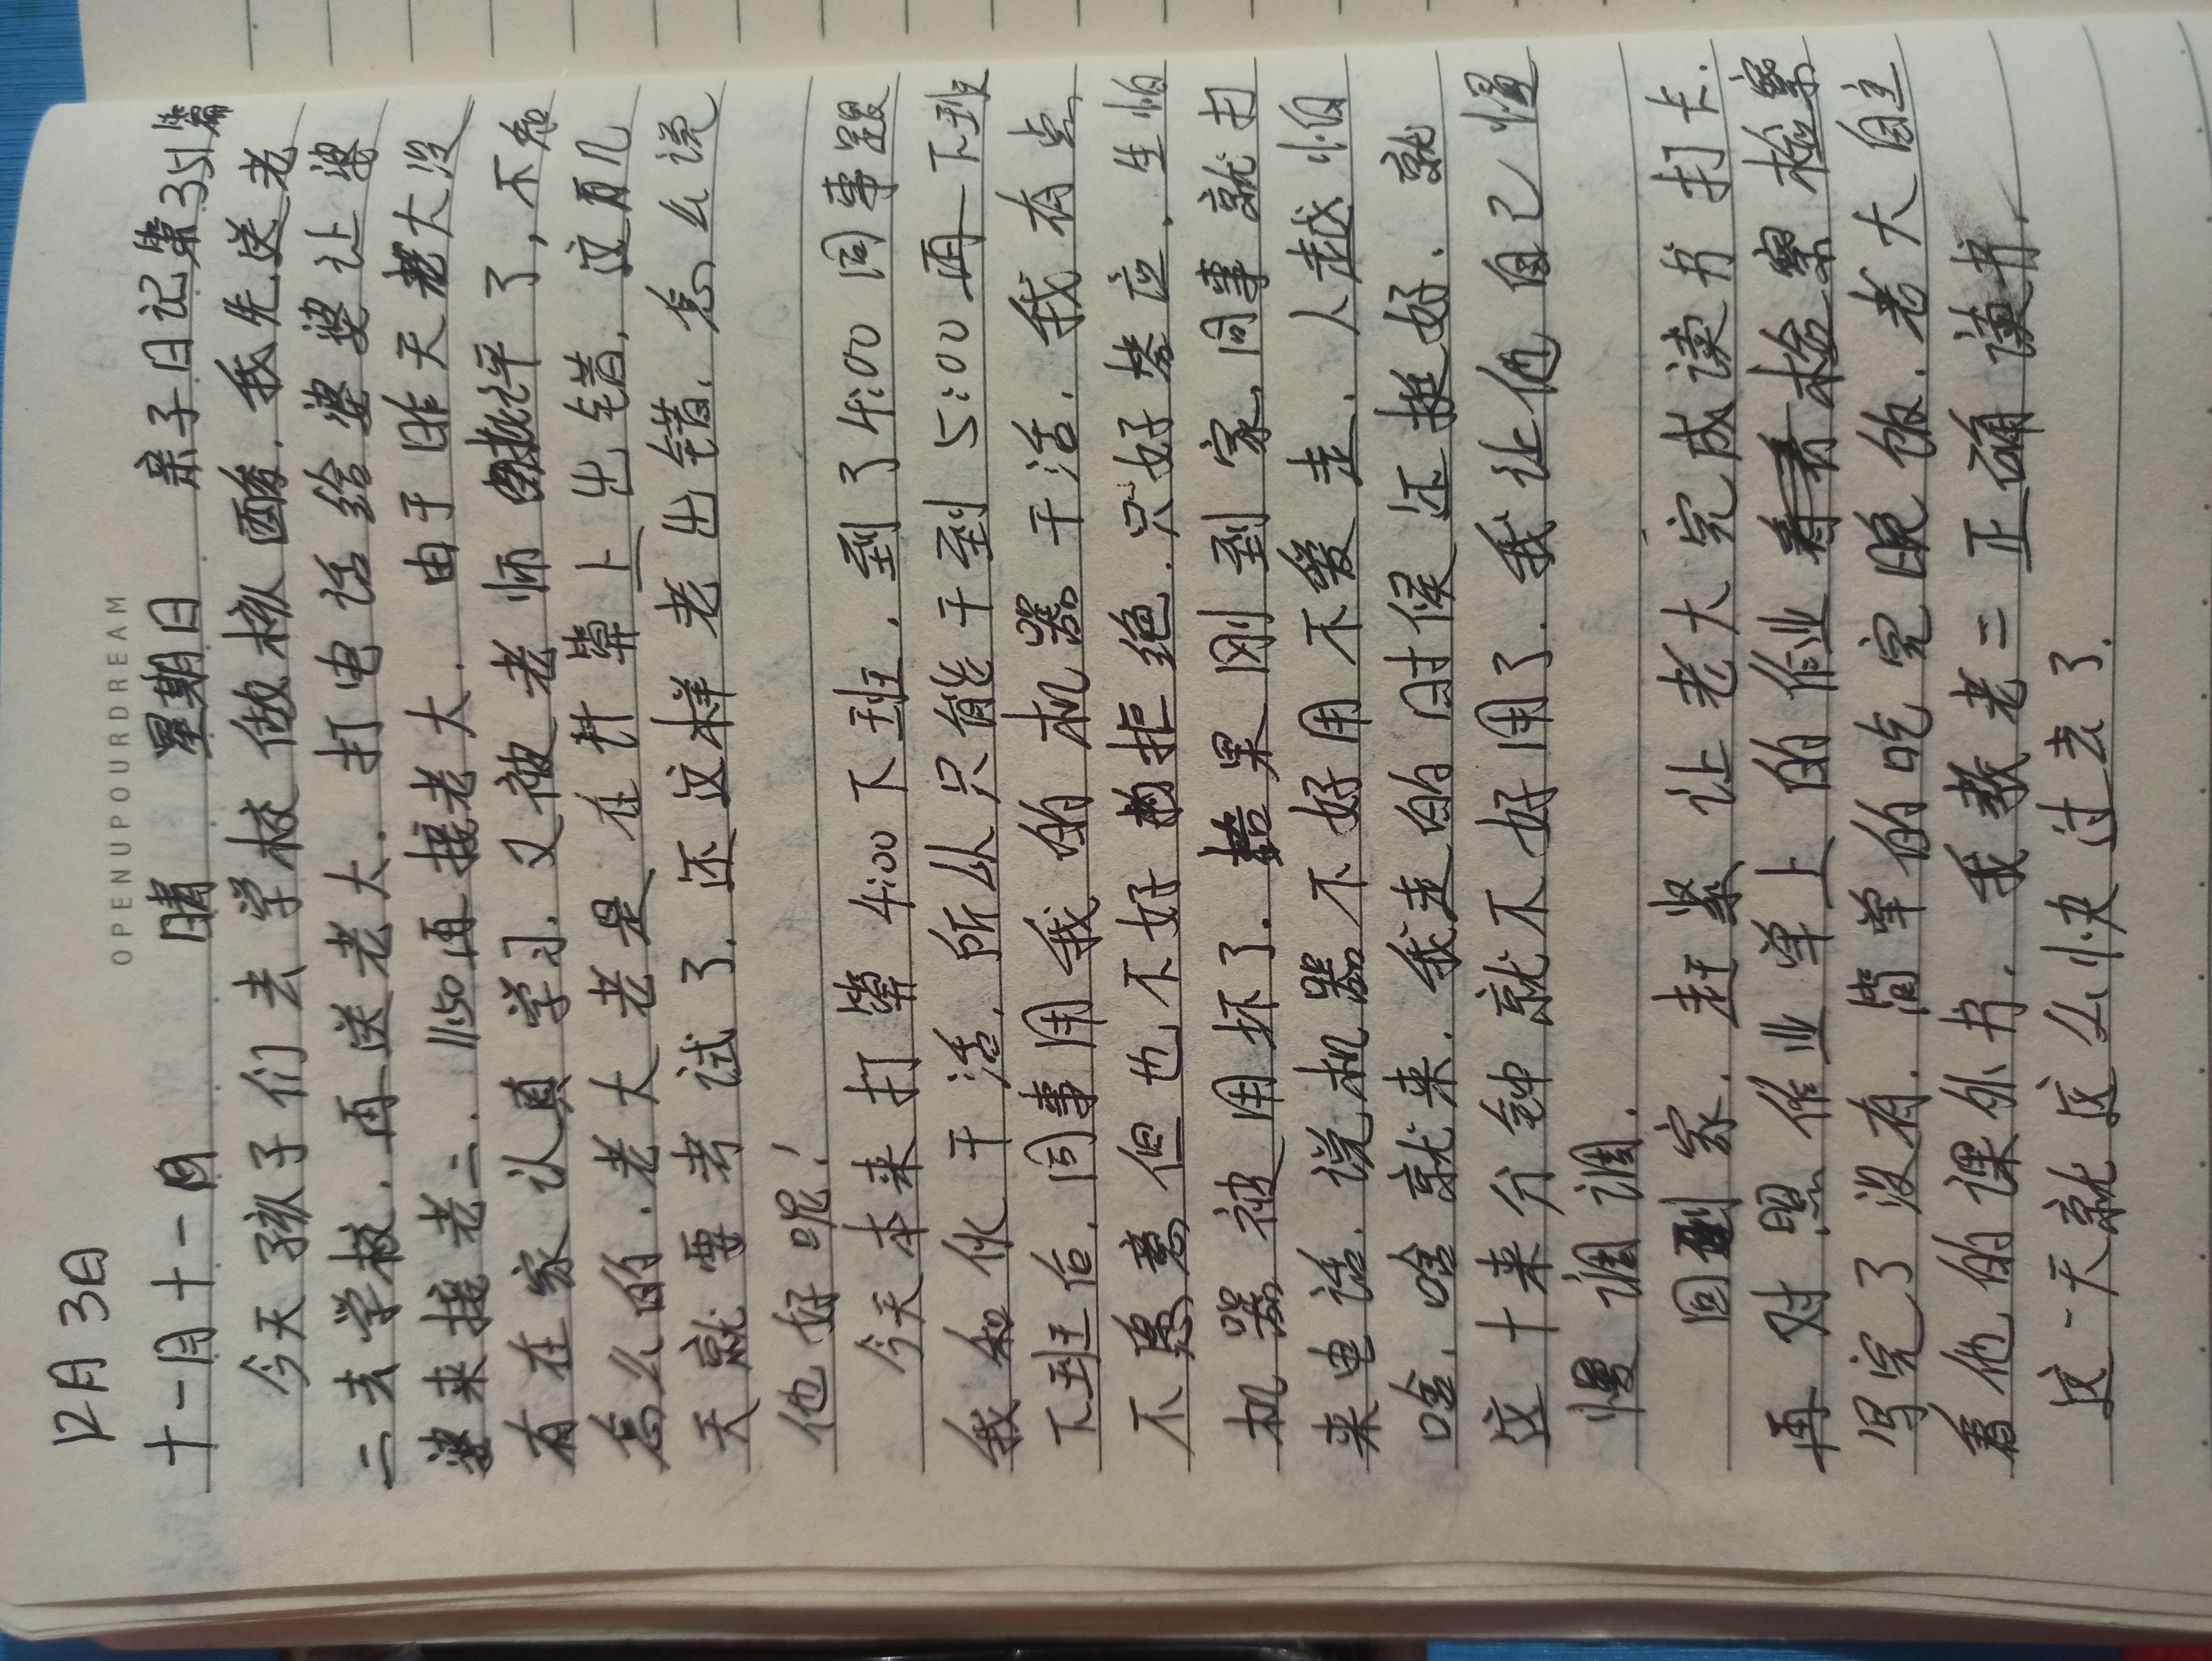 OPENUPOURDREAM
12月3日
十一月十一日 晴 星期日 亲子日记第351篇
今天孩子们去学校做核酸.我先送老
二去学校.再送老大.打电话给婆婆让婆
婆来接老二.11:50再接老大.由于昨天老大没
有在家认真学习.又被老师批评了,不知
怎么的.老大老是在计算上出错.这再几
天就要考试了.还这样老出错.怎么说
他好呢!
今天本来打算4:00下班.到了4:00同事跟
我和伙干活.所从只能干到5:00再下班
下班后.同事用我的机器干活.我有点
不愿意但也不好拒绝.只好答应.生怕
机器被用坏了.结果刚到家,同事就打
来电话.说机器不好用不爱走.人越怕
啥.啥就来.我走的时候还挺好.就
这十来分钟就不好用了.我让他自己慢
慢调调.
回到家.赶紧让老大完成读书打卡.
再对照作业单上的作业检察检察
写完了没有.简单的吃完晚饭.老大自主
看他的课外书.我教老二正确读书.
这一天就这么快过去了.